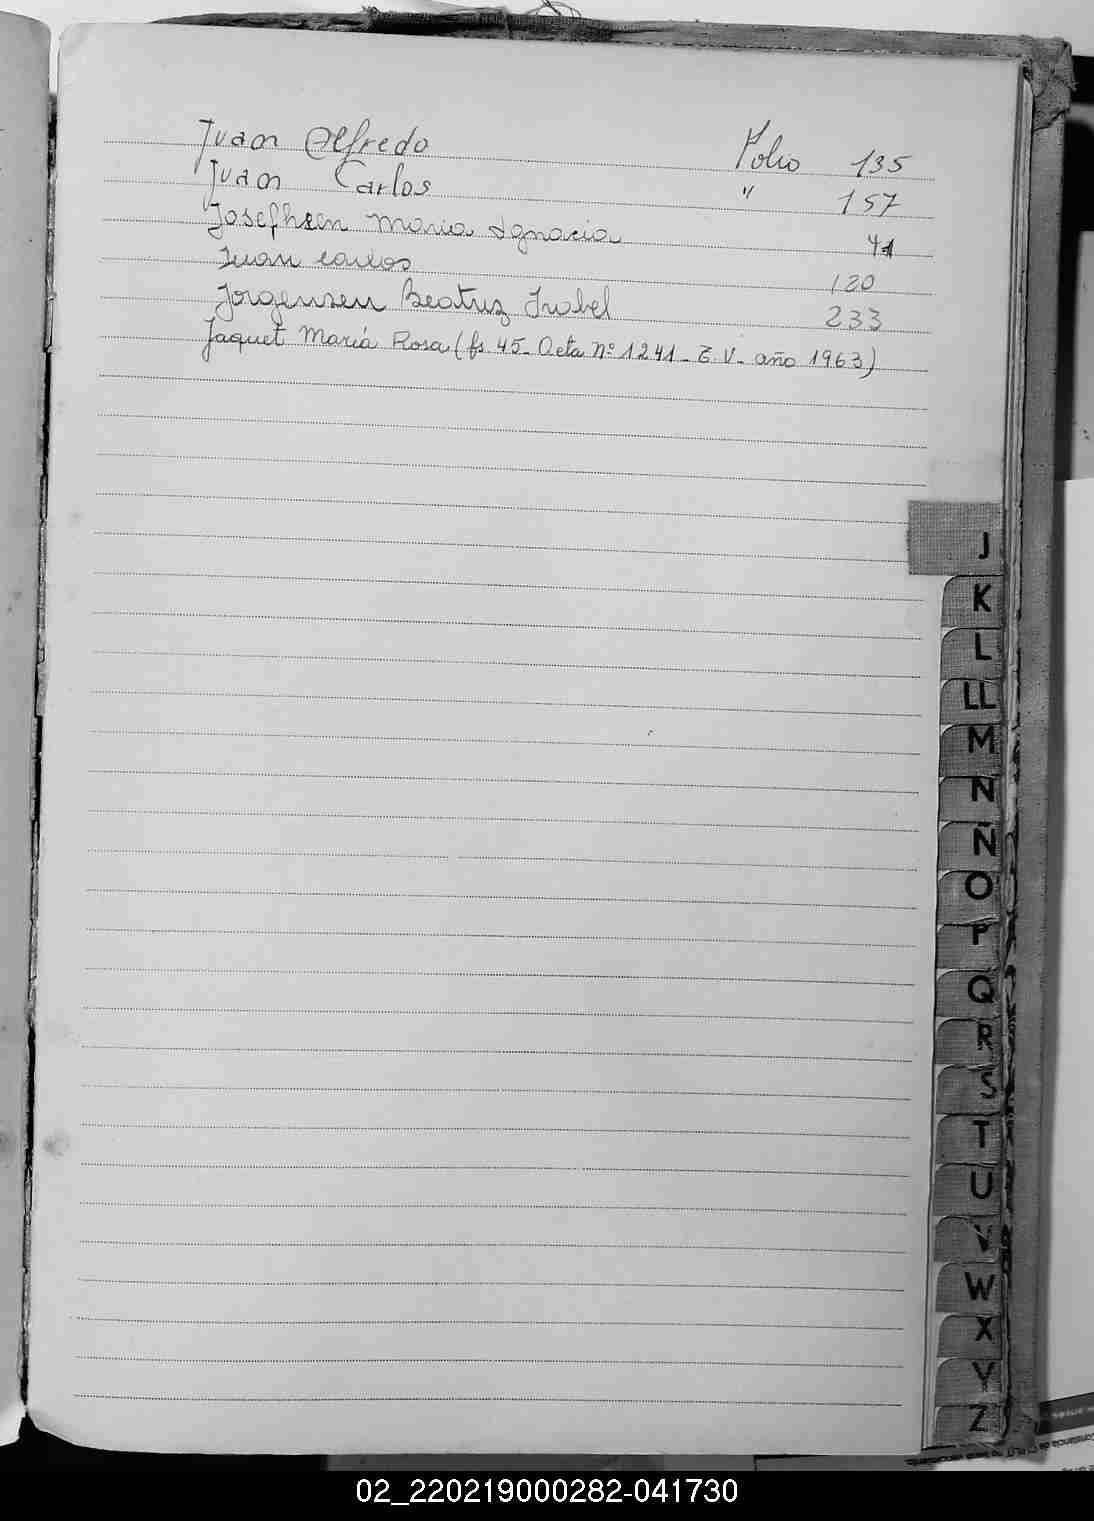 Juan Alfredo Folio 135
Juan Carlos " 157
Maria Ignacia 41
Juan Carlos 120
Jorgensen Beatriz Isabel 233
Jaquet María Rosa (fs. 45 - Acta Nº 1241 - T. V - año 1963)
J
K
L
LL
M
N
Ñ
O
P
Q
R
S
T
U
V
W
X
Y
Z
02_220219000282-041730